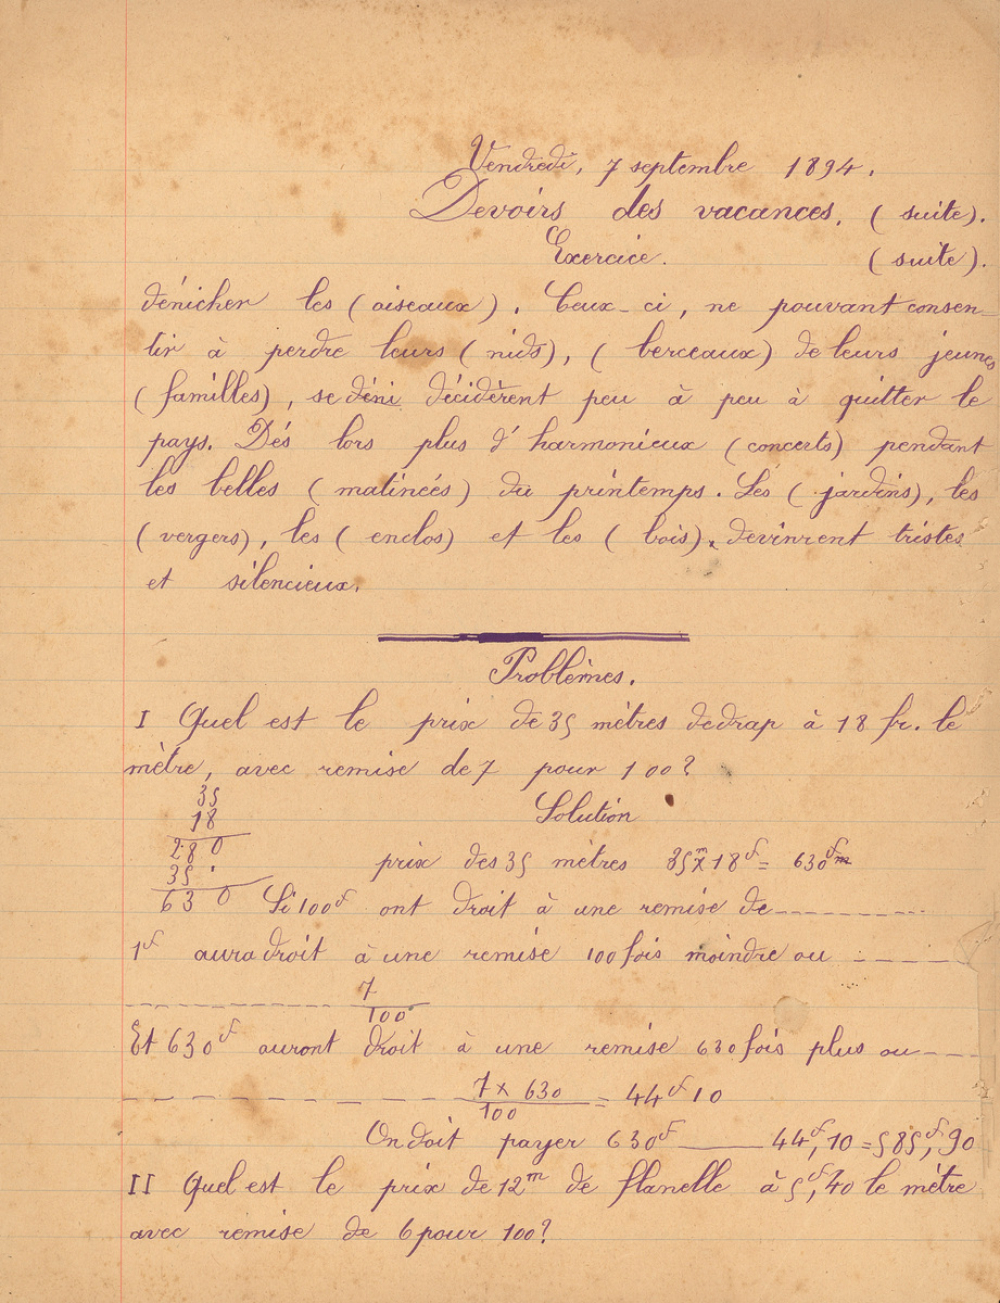 Vendredi, 7 septembre 1894.
Devoirs des vacances. (suite).
Exercice. (suite).
dénicher les (oiseaux). Ceux-ci, ne pouvant consen-
tir à perdre leurs (nids), (berceaux) de leurs jeunes
(familles), se déni décidèrent peu à peu à quitter le
pays. Dés lors plus d'harmonieux (concerts) pendant
les belles (matineés) du printemps. Les (jardins), les
(vergers), les (enclos) et les (bois), devinrent tristes
et silencieux.
Problèmes.
I Quel est le prix de 35 mètres de drap à 18 fr. le
mètre, avec remise de 7 pour 100?
35
18 Solution
280
prix des 35 mètres 35m x 18f = 630f m
35.
630 Si 100f ont droit à une remise de----------
1f aura droit à une remise 100 fois moindre ou -----
-------------- 7/100
Et 630f auront droit à une remise 630 fois plus ou----
- - - - - - - - - 7 x 630/100 = 44f10
On doit payer 630f — 44f,10 = 585f,90
II Quel est le prix de 12m de flanelle à 5f,40 le mètre
avec remise de 6 pour 100?